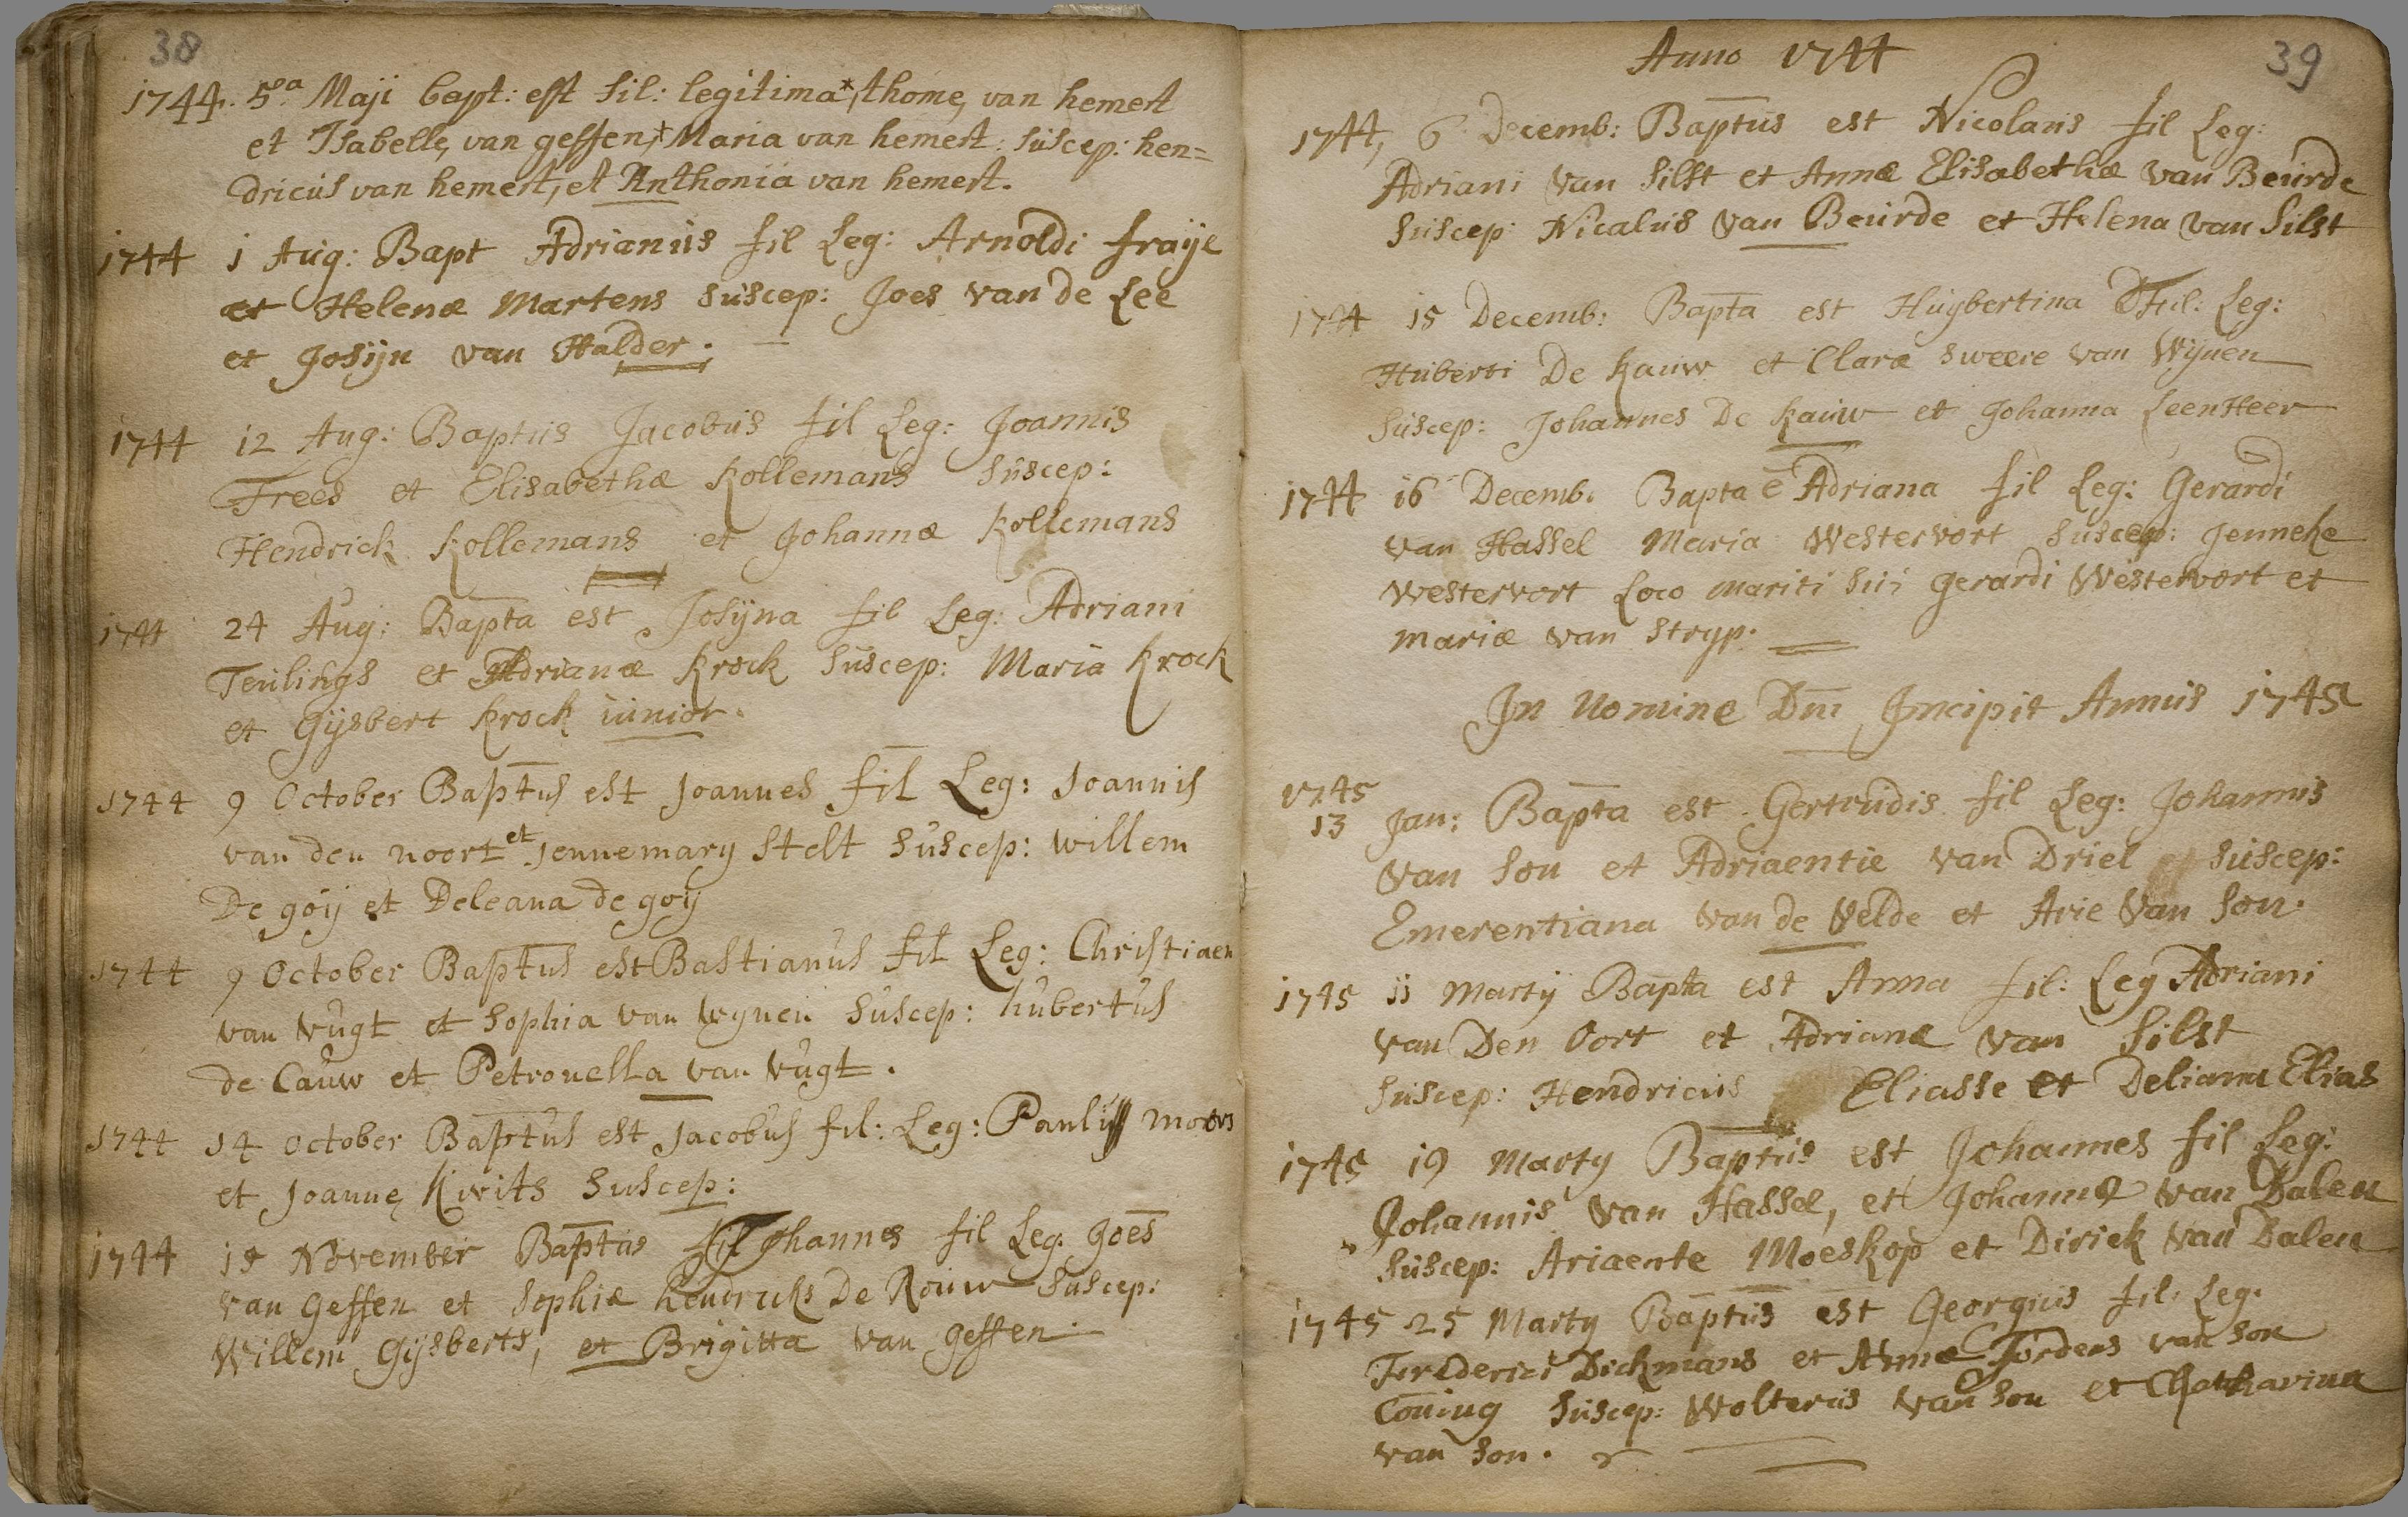 38
1744. 5.a Maji bapt: est fil: legitima* thome van hemert
et Isabelle van geffen,* Maria van hemert: suscep: hen=
dricus van hemert, et Anthonia van hemert.
1744 1 Aug: Bapt Adrianus fil Leg: Arnoldi fraije
et Helenæ Martens suscep: Joes van de Lee
et Josijn van Halder.
1744 12 Aug: Baptus Jacobus fil Leg: Joannis
Frees et Elisabethæ Kollemans suscep:
Hendrick Kollemans et Johannæ Kollemans
1744 24 Aug: Bapta est Josijna fil Leg: Adriani
Teulings et Adrianæ Krock suscep: Maria Krock
et Gijsbert Krock iunior.
1744 9 October Baptus est Joannes fil Leg: Joannis
van den noort et Jennemary Stelt suscep: willem
De goij et Deleana de goij
1744 9 October Baptus est Bastianus fil Leg: Christiaen
van vugt et Sophia van wynen suscep: hubertus
de Cauw et Petronella van vugt.
1744 14 October Baptus est Jacobus fil: Leg: Pauli moors
et Joanne Kivits suscep:
1744 November Baptus Johannes fil Leg: Joes
van Geffen et Sophiæ hendricks De Rouw suscep:
Willem Gijsberts, et Brigitta van Geffen.
Anno 1744
39
1744, 6 Decemb: Baptus est Nicolaus fil Leg:
Adriani van Silst et Annæ Elisabethæ van Beurde
suscep: Nicalus van Beurde et Helena van Silst
1744 15 Decemb: Bapta est Huijbertina Fil: Leg:
Huberti De Kauw et Claræ sweere van Wijnen
suscep: Johannes De Kauw et Johanna LeenHeer
1744 16 Decemb. Bapta ē Adriana fil Leg: Gerardi
van Hassel Maria Westervort suscep: Jenneke
westervort Loco mariti sui Gerardi Westervort et
mariæ van Stryp.
In Nomine Dni Incipit Annus 1745
1745
13 Jan: Bapta est Gertrudis fil Leg: Johannis
van Son et Adriaentie van Driel suscep:
Emerentiana van de Velde et Arie van Son.
1745 11 Martij Bapta est Anna fil: Leg Adriani
van Den Oort et Adrianæ van Silst
suscep: Hendricus Eliasse et Deliana Elias
1745 19 Marty Baptus est Johannes fil Leg:
Johannis van Hassel, et Johannæ van Dalen
suscep: Ariaente Moeskop et Dirick van Dalen
1745 25 Marty Baptus est Georgius fil. Leg.
Frederici Dickmans et Annæ Jordens van son
Coning suscep: Wolterus van Son et Chatharina
van Son.